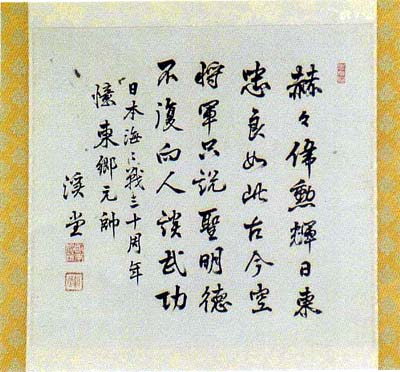 赫々偉勲輝日東
忠良如此古今空
将軍只説聖明徳
不復向人談武功
日本海々戦三十周年
憶東郷元帥
溪堂